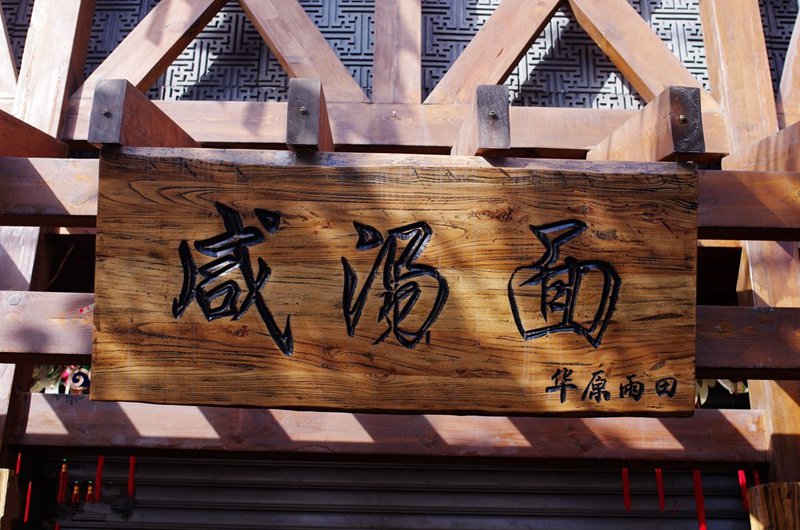 咸汤面
华原雨田